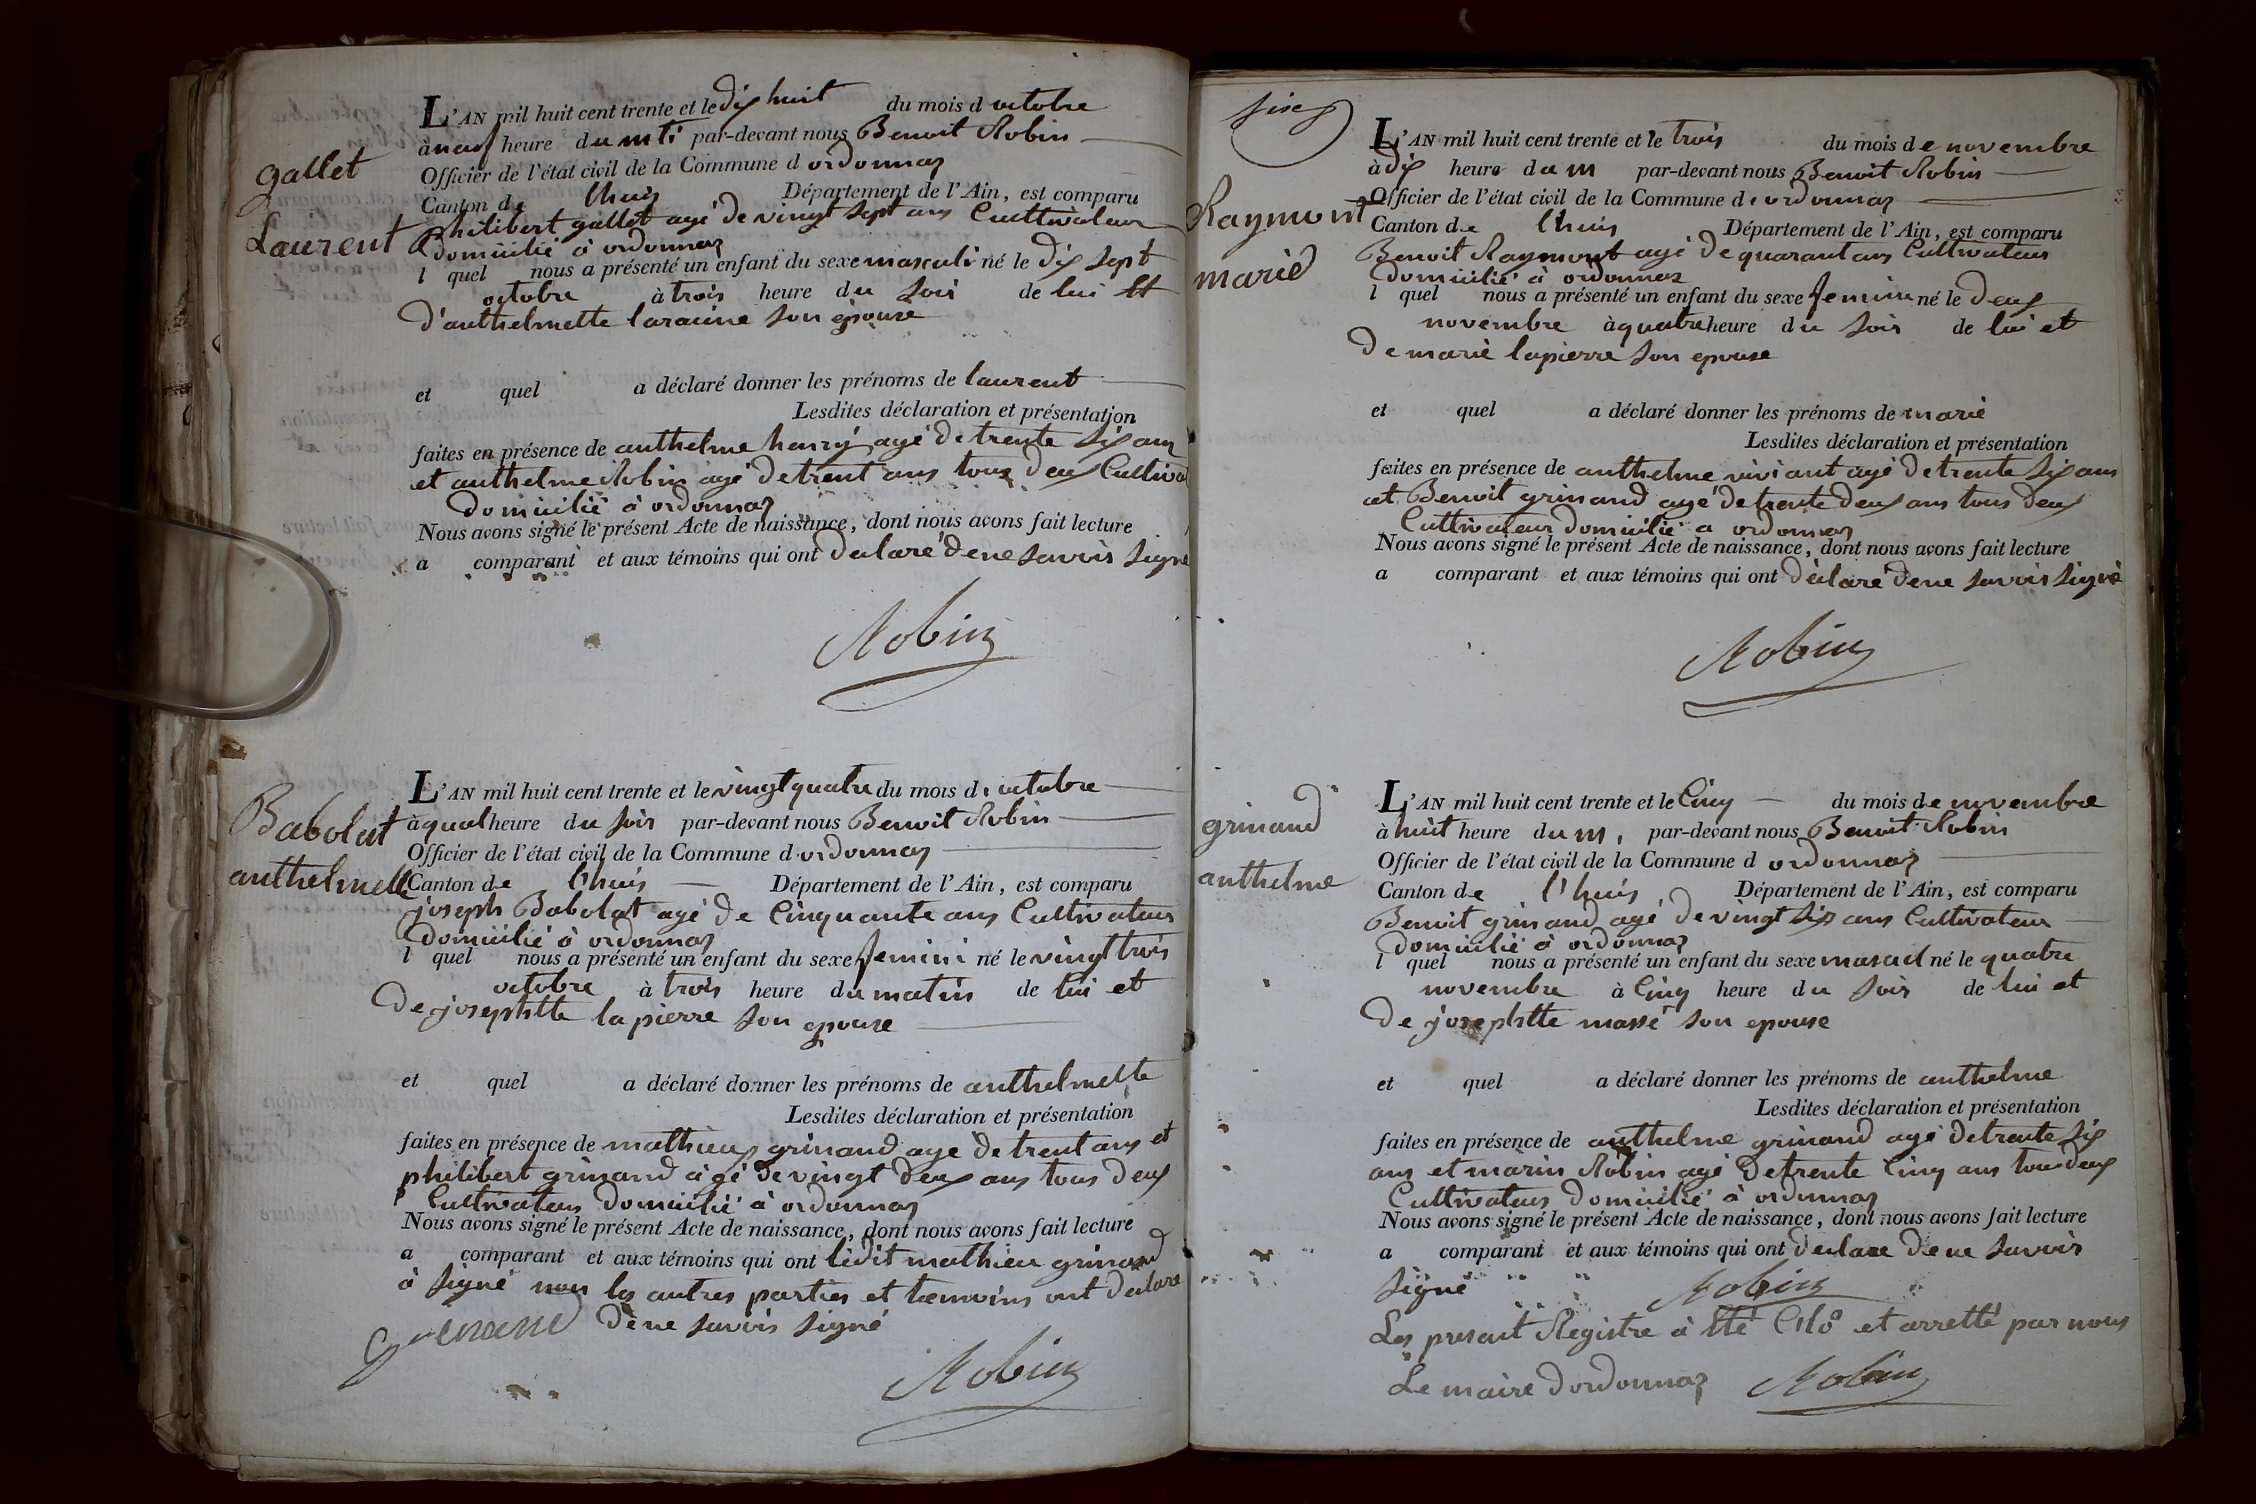 gallet
Laurent
L'AN mil huit cent trente et le dix huit du mois d octobre
à neuf heure du mti par-devant nous Benoit Robin
Officier de l'état civil de la Commune d ordonnaz
Canton de l'huis Département de l'Ain, est comparu
philibert gallet agé de vingt sept ans Cultivateur
domicilié à ordonnaz
l quel nous a présenté un enfant du sexe masculi né le dix sept
octobre à trois heure du soir de lui et
d'anthelmette laracine son epouse
et quel a déclaré donner les prénoms de laurent
Lesdites déclaration et présentation
faites en présence de anthelme harry agé de trente six ans
et anthelme Robin agé de trent ans tous deux Cultiva
domicilié à ordonnaz
Nous avons signé le présent Acte de naissance, dont nous avons fait lecture
a comparant et aux témoins qui ont déclaré de ne savoir signé
Robin
Babolat
anthelmette
L'AN mil huit cent trente et le vingt quatre du mois d octobre
à quat heure du soir par-devant nous Benoit Robin
Officier de l'état civil de la Commune d ordonnaz
Canton de l'huis Département de l'Ain, est comparu
joseph Babolat agé de Cinquante ans Cultivateur
domicilié à ordonnaz
l quel nous a présenté un enfant du sexe femini né le vingt trois
octobre à trois heure du matin de lui et
de josephtte lapierre son epouse
et quel a déclaré donner les prénoms de anthelmette
Lesdites déclaration et présentation
faites en présence de mathieu grinand agé de trent ans et
philibert grinand agé de vingt deux ans tous deux
Cultivateur domicilié à ordonnaz
Nous avons signé le présent Acte de naissance, dont nous avons fait lecture
a comparant et aux témoins qui ont ledit mathieu grinand
à signé non les autres parties et temoins ont declaré
de ne savoir signé
Robin
Raymont
marie
L'AN mil huit cent trente et le trois du mois de novembre
à dix heure du m par-devant nous Benoit Robin
Officier de l'état civil de la Commune d ordonnaz
Canton de l'huis Département de l'Ain, est comparu
Benoit Raymont agé de quarant ans Cultivateur
domicilié à ordonnaz
l quel nous a présenté un enfant du sexe feminin né le deux
novembre à quatre heure du soir de lui et
de marie lapierre son epouse
et quel a déclaré donner les prénoms de marie
Lesdites déclaration et présentation
faites en présence de anthelme viviant agé de trente six ans
et Benoit grinand agé de trente deux ans tous deux
Cultivateur domicilié a ordonnaz
Nous avons signé le présent Acte de naissance, dont nous avons fait lecture
a comparant et aux témoins qui ont déclaré de ne savoir signé
Robin
grinand
anthelme
L'AN mil huit cent trente et le Cinq du mois de novembre
à huit heure du m, par-devant nous Benoit Robin
Officier de l'état civil de la Commune d ordonnaz
Canton de l'huis Département de l'Ain, est comparu
Benoit grinand agé de vingt six ans Cultivateur
domicilié à ordonnaz
l quel nous a présenté un enfant du sexe né le quatre
novembre à Cinq heure du soir de lui et
de josephtte massé son epouse
et quel a déclaré donner les prénoms de anthelme
Lesdites déclaration et présentation
faites en présence de anthelme grinand agé de trente six
ans et marin Robin agé de trente Cinq ans tous deux
Cultivateur domicilié à ordonnaz
Nous avons signé le présent Acte de naissance, dont nous avons fait lecture
a comparant et aux témoins qui ont declare de ne savoir
signé Robin
Les present Registre à été Clo et arretté par nous
Le maire d'ordonnaz Robin